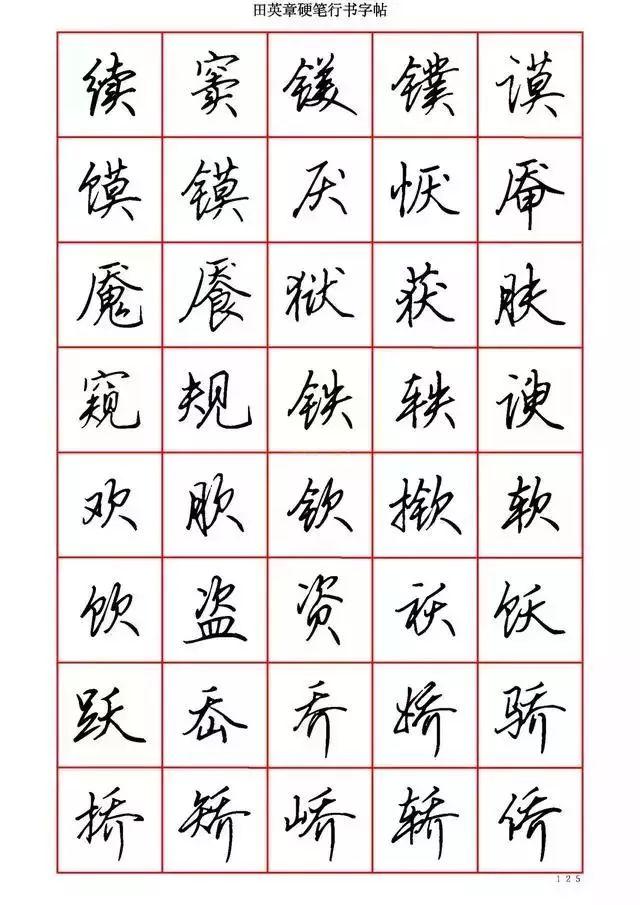 田英章硬笔行书字帖
续 窦 镁 镤 谟
馍 镆 厌 恹 厣
魇 餍 狱 获 肤
窥 规 铁 轶 谀
欢 肷 钦 揿 软
饮 盗 资 袄 饫
跃 岙 乔 娇 骄
挢 矫 峤 轿 侨
125